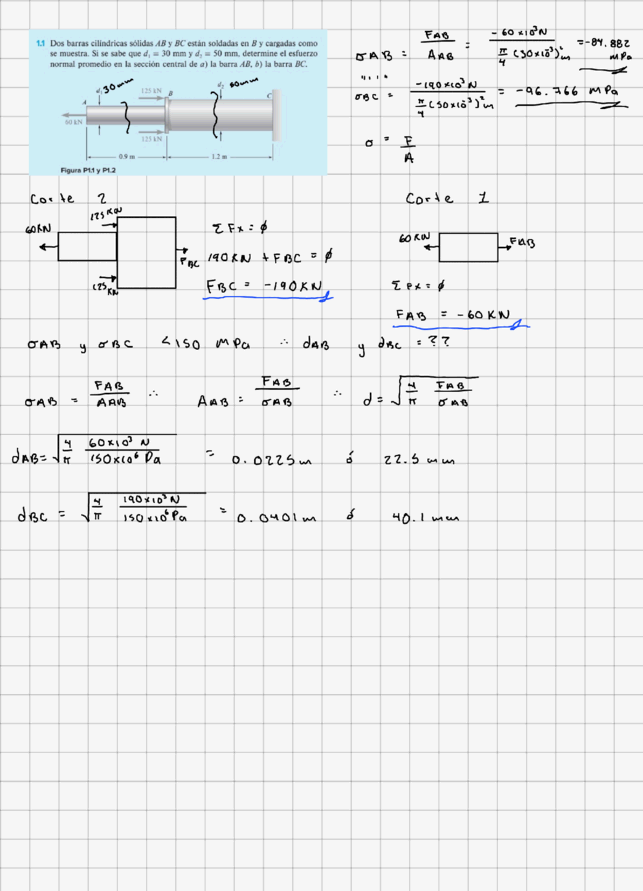 1.1 Dos barras cilíndricas sólidas AB y BC están soldadas en B y cargadas como
se muestra. Si se sabe que d₁ = 30 mm y d₂ = 50 mm, determine el esfuerzo
normal promedio en la sección central de a) la barra AB, b) la barra BC.
d₁ 30mm
d₂ 50mm
125 kN
A
B
C
60 kN
125 kN
0.9 m
1.2 m
Figura P1.1 y P1.2
σAB = FAB/AAB = -60x10³N / π/4 (30x10⁻³)²m = -84.882 MPa
σBC = -190x10³N / π/4 (50x10⁻³)²m = -96.766 MPa
σ = F/A
Corte 2
125KN
60KN
FBC
125 KN
ΣFx = ∅
190KN + FBC = ∅
FBC = -190KN
Corte 1
60KN
FAB
ΣFx = ∅
FAB = -60KN
σAB y σBC <150 MPa ∴ dAB y dBC = ??
σAB = FAB/AAB ∴ AAB = FAB/σAB ∴ d = √(4/π FAB/σAB)
dAB = √(4/π 60x10³ N/150x10⁶ Pa) = 0.0225m ó 22.5 mm
dBC = √(4/π 190x10³N/150x10⁶Pa) = 0.0401m ó 40.1 mm